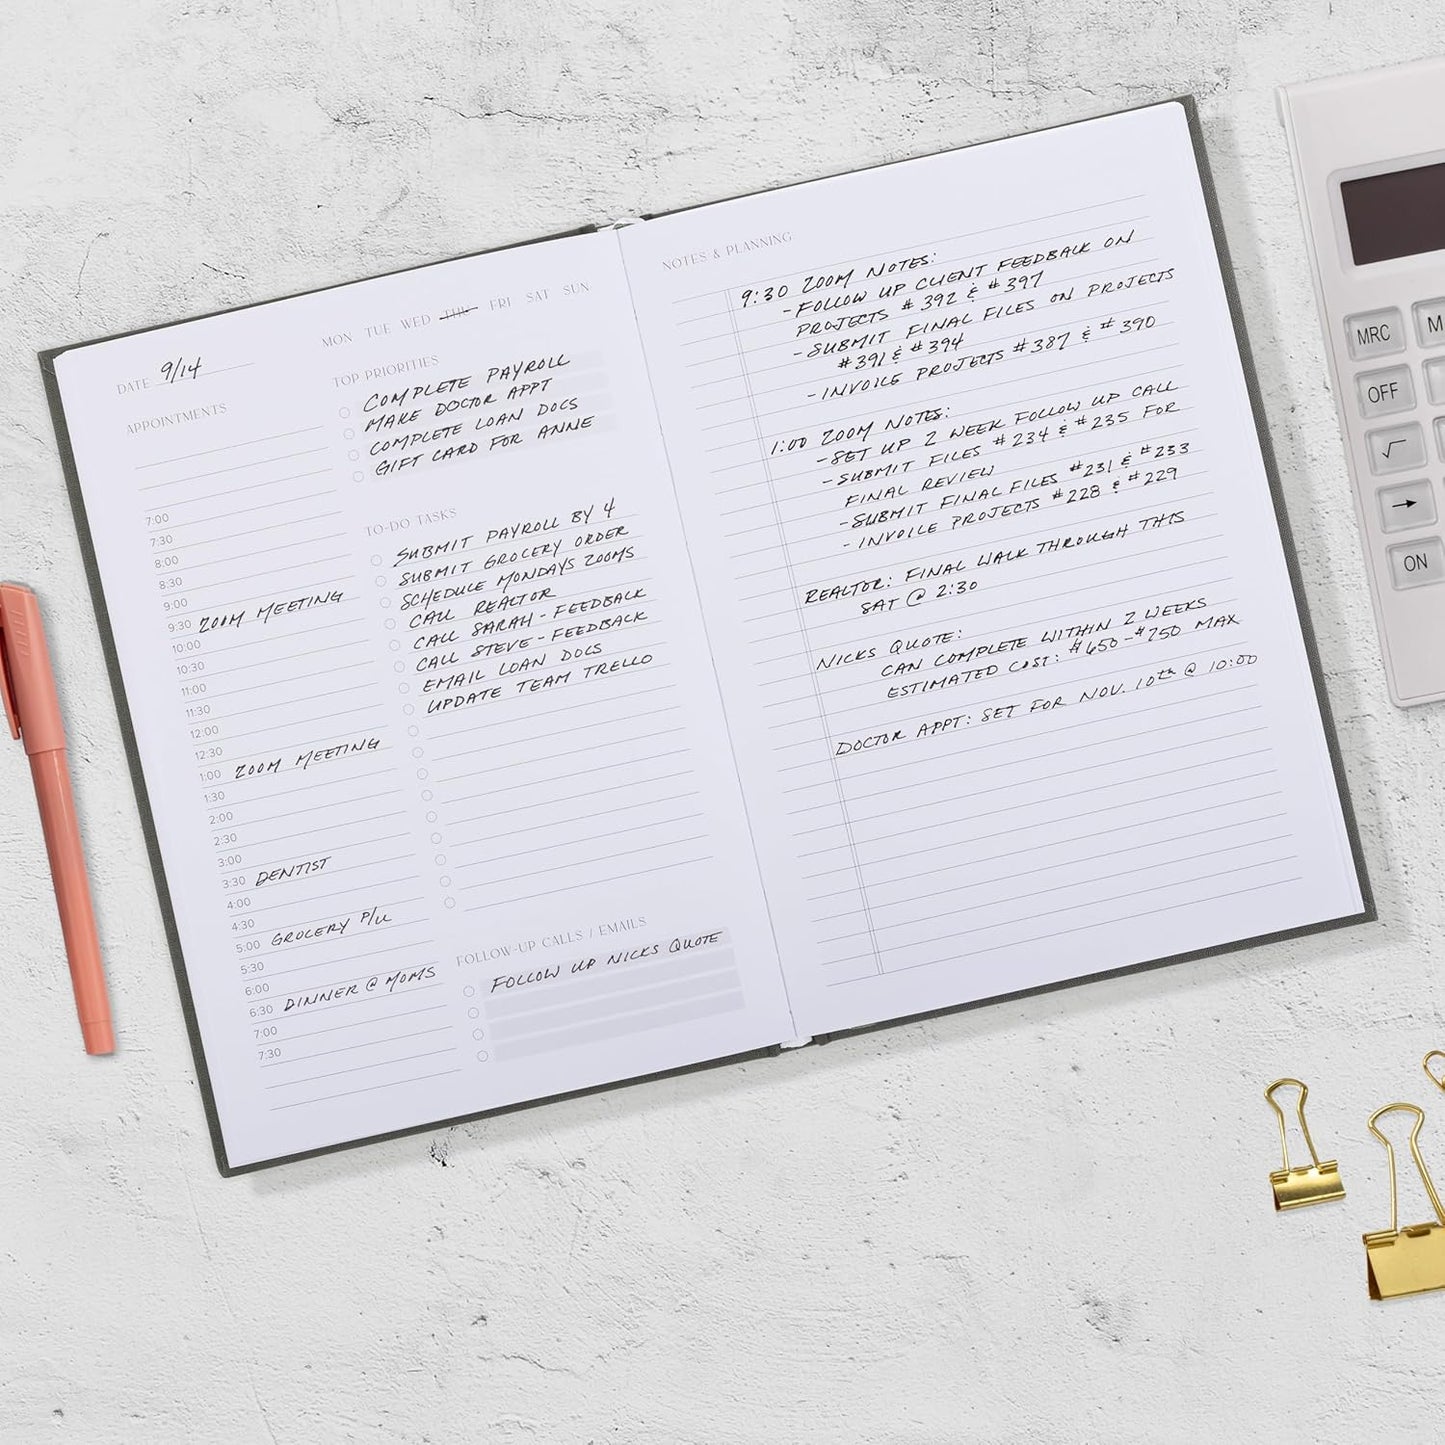 MON TUE WED THU FRI SAT SUN
DATE 9/14
APPOINTMENTS
7:00
7:30
8:00
8:30
9:00
9:30 ZOOM MEETING
10:00
10:30
11:00
11:30
12:00
12:30
1:00 ZOOM MEETING
1:30
2:00
2:30
3:00
3:30 DENTIST
4:00
4:30
5:00 GROCERY P/U
5:30
6:00
6:30 DINNER @ MOMS
7:00
7:30
TOP PRIORITIES
COMPLETE PAYROLL
MAKE DOCTOR APPT
COMPLETE LOAN DOCS
GIFT CARD FOR ANNE
TO-DO TASKS
SUBMIT PAYROLL BY 4
SUBMIT GROCERY ORDER
SCHEDULE MONDAYS ZOOMS
CALL REALTOR
CALL SARAH - FEEDBACK
CALL STEVE - FEEDBACK
EMAIL LOAN DOCS
UPDATE TEAM TRELLO
FOLLOW-UP CALLS / EMAILS
FOLLOW UP NICKS QUOTE
NOTES & PLANNING
9:30 ZOOM NOTES:
- FOLLOW UP CLIENT FEEDBACK ON
PROJECTS # 392 & # 397
- SUBMIT FINAL FILES ON PROJECTS
#391 & #394
- INVOICE PROJECTS #387 & #390
1:00 ZOOM NOTES:
- SET UP 2 WEEK FOLLOW UP CALL
- SUBMIT FILES #234 & #235 FOR
FINAL REVIEW
- SUBMIT FINAL FILES #231 & #233
- INVOICE PROJECTS #228 & #229
REALTOR: FINAL WALK THROUGH THIS
SAT @ 2:30
NICKS QUOTE:
CAN COMPLETE WITHIN 2 WEEKS
ESTIMATED COST: $650-$750 MAX
DOCTOR APPT: SET FOR NOV. 10th @ 10:00
MRC M
OFF
√
→
ON